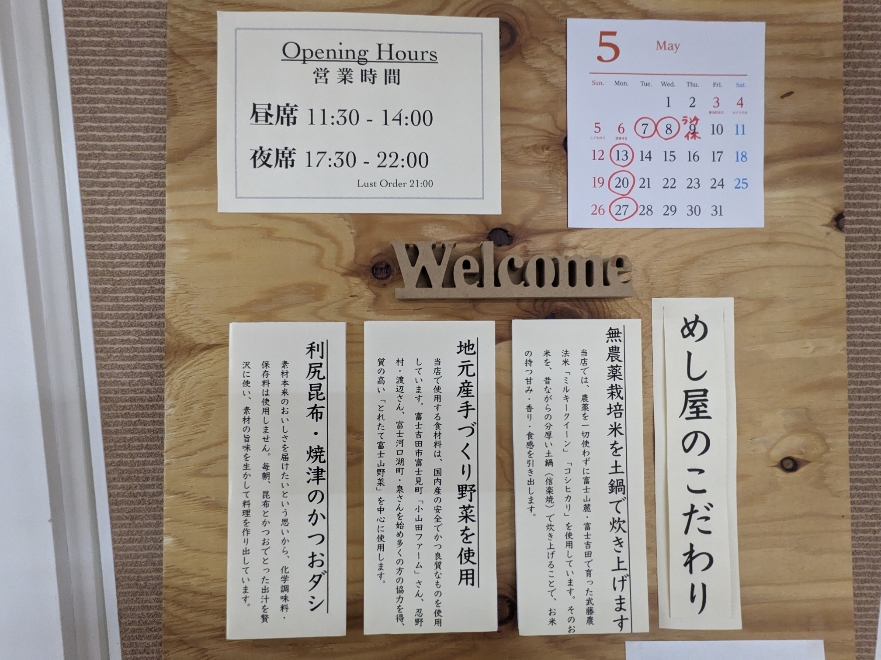 Opening Hours
営業時間
昼席 11:30 - 14:00
夜席 17:30 - 22:00
Lust Order 21:00
5 May
Sun. Mon. Tue. Wed. Thu. Fri. Sat.
1 2 3 4
5 6 7 8 9 10 11
ランチ休
12 13 14 15 16 17 18
19 20 21 22 23 24 25
26 27 28 29 30 31
Welcome
めし屋のこだわり
無農薬栽培米を土鍋で炊き上げます
当店では、農薬を一切使わずに富士山麓・富士吉田で育った武藤農
法米「ミルキークイーン」「コシヒカリ」を使用しています。そのお
米を、昔ながらの分厚い土鍋（信楽焼）で炊き上げることで、お米
の持つ甘み・香り・食感を引き出します。
地元産手づくり野菜を使用
当店で使用する食材料は、国内産の安全でかつ良質なものを使用
しています。富士吉田市富士見町「小山田ファーム」さん、忍野
村・渡辺さん、富士河口湖町・泉さんを始め多くの方の協力を得、
質の高い「とれたて富士山野菜」を中心に使用します。
利尻昆布・焼津のかつおダシ
素材本来のおいしさを届けたいという思いから、化学調味料・
保存料は使用しません。毎朝、昆布とかつおでとった出汁を贅
沢に使い、素材の旨味を生かして料理を作り出しています。